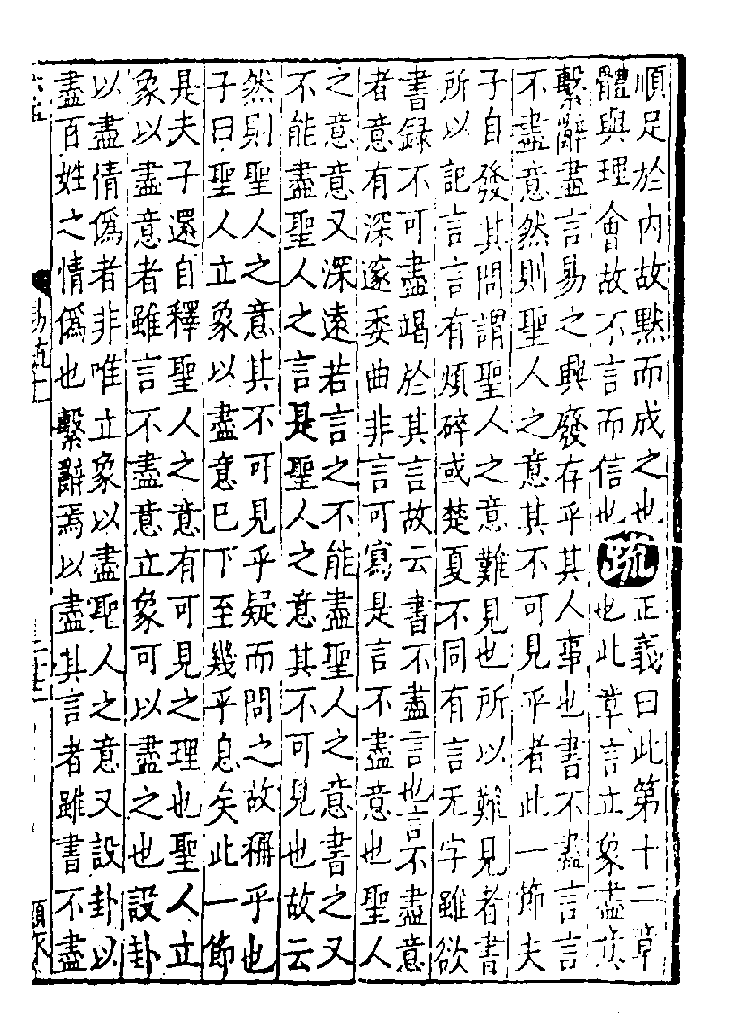 順足於内故默而成之也
體與理會故不言而信也
疏
正義曰此第十二章
也此章言立象盡意
繫辭盡言易之興廢存乎其人事也書不盡言言
不盡意然則聖人之意其不可見乎者此一節夫
子自發其問謂聖人之意難見也所以難見者書
所以記言言有煩碎或楚夏不同有言无字雖欲
書録不可盡竭於其言故云書不盡言也言不盡意
者意有深邃委曲非言可寫是言不盡意也聖人
之意意又深遠若言之不能盡聖人之意書之又
不能盡聖人之言是聖人之意其不可見也故云
然則聖人之意其不可見乎疑而問之故稱乎也
子曰聖人立象以盡意已下至幾乎息矣此一節
是夫子還自釋聖人之意有可見之理也聖人立
象以盡意者雖言不盡意立象可以盡之也設卦
以盡情偽者非唯立象以盡聖人之意又設卦以
盡百姓之情偽也繫辭焉以盡其言者雖書不盡